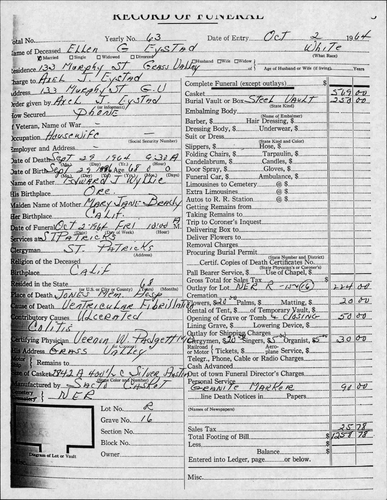 RECORD OF FUNERAL
Total No. Yearly No. 63 Date of Entry Oct 2 1964
Name of Deceased Ellen G Eystad White
Married Single Widowed Divorced Husband Widow Wife (What Race)
Residence 133 Murphy St Grass Valley Age of Husband or Wife (if living) Years
Charge to Axel J. Eystad
Address 133 Murphy St G.V
Order given by Axel J Eystad
How Secured Phone
If Veteran, Name of War
Occupation Housewife
Employer and Address
Date of Death Sept 29 1964 6:30 A
Date of Birth Sept 29 1896 Age 68 0 0
Name of Father Edward J Wyllie
His Birthplace Ore
Maiden Name of Mother Mary Jane
Her Birthplace Calif.
Date of Funeral Oct 2 1964 Fri 10:00 A M
Services at St Patricks
Clergyman St. Patricks
Religion of the Deceased
Birthplace Calif
Resided in the State 68
Place of Death Jones Mem. Hosp
Cause of Death Ventricular Fibrillation
Contributory Causes Ulcerated
Colitis
Certifying Physician Vernon W. Padgett M.D.
His Address Grass Valley
Remains to
Size of Casket
Manufactured by Sacto Casket
NER
Lot No. R
Grave No. 16
Section No.
Block No.
Owner
Diagram of Lot or Vault
Complete Funeral (except outlays) $
Casket 569 00
Burial Vault or Box Steel Vault 250 00
Embalming Body
Barber, $ Hair Dressing, $
Dressing Body, $ Underwear, $
Suit or Dress
Slippers, $ Hose, $
Folding Chairs, $ Tarpaulin, $
Candelabrum, $ Candles, $
Door Spray, $ Gloves, $
Funeral Car, $ Ambulance, $
Limousines to Cemetery @ $
Extra Limousines @ $
Autos to R. R. Station @ $
Getting Remains from
Taking Remains to
Trip to Coroner's Inquest
Delivering Box to
Deliver Flowers to
Removal Charges
Procuring Burial Permit
Certif. Copies of Death Certificates No.
Pall Bearer Service, $ Use of Chapel, $
Gross Total to Sales Tax Line $
Outlay for Lot NER R-15+(16) 224 00
Cremation
Flowers, $20 Palms, $ Matting, $ 20 00
Rental of Tent, $ of Temporary Vault, $
Opening of Grave or Tomb Closing 50 00
Lining Grave, $ Lowering Device, $
Outlay for Shipping Charges
Clergyman, $ 20 Singers, $5 Organist, $5 30 00
Railroad or Motor Tickets, $ Aeroplane Service, $
Telegr., Phone, Cable or Radio Charges
Cash Advanced
Out of town Funeral Director's Charges
Personal Service
Granite Marker 90 00
line Death Notices in Papers
(Names of Newspapers)
Sales Tax 25 78
Total Footing of Bill $1258 78
Less
Balance $
Entered into Ledger, page or below.
Misc.